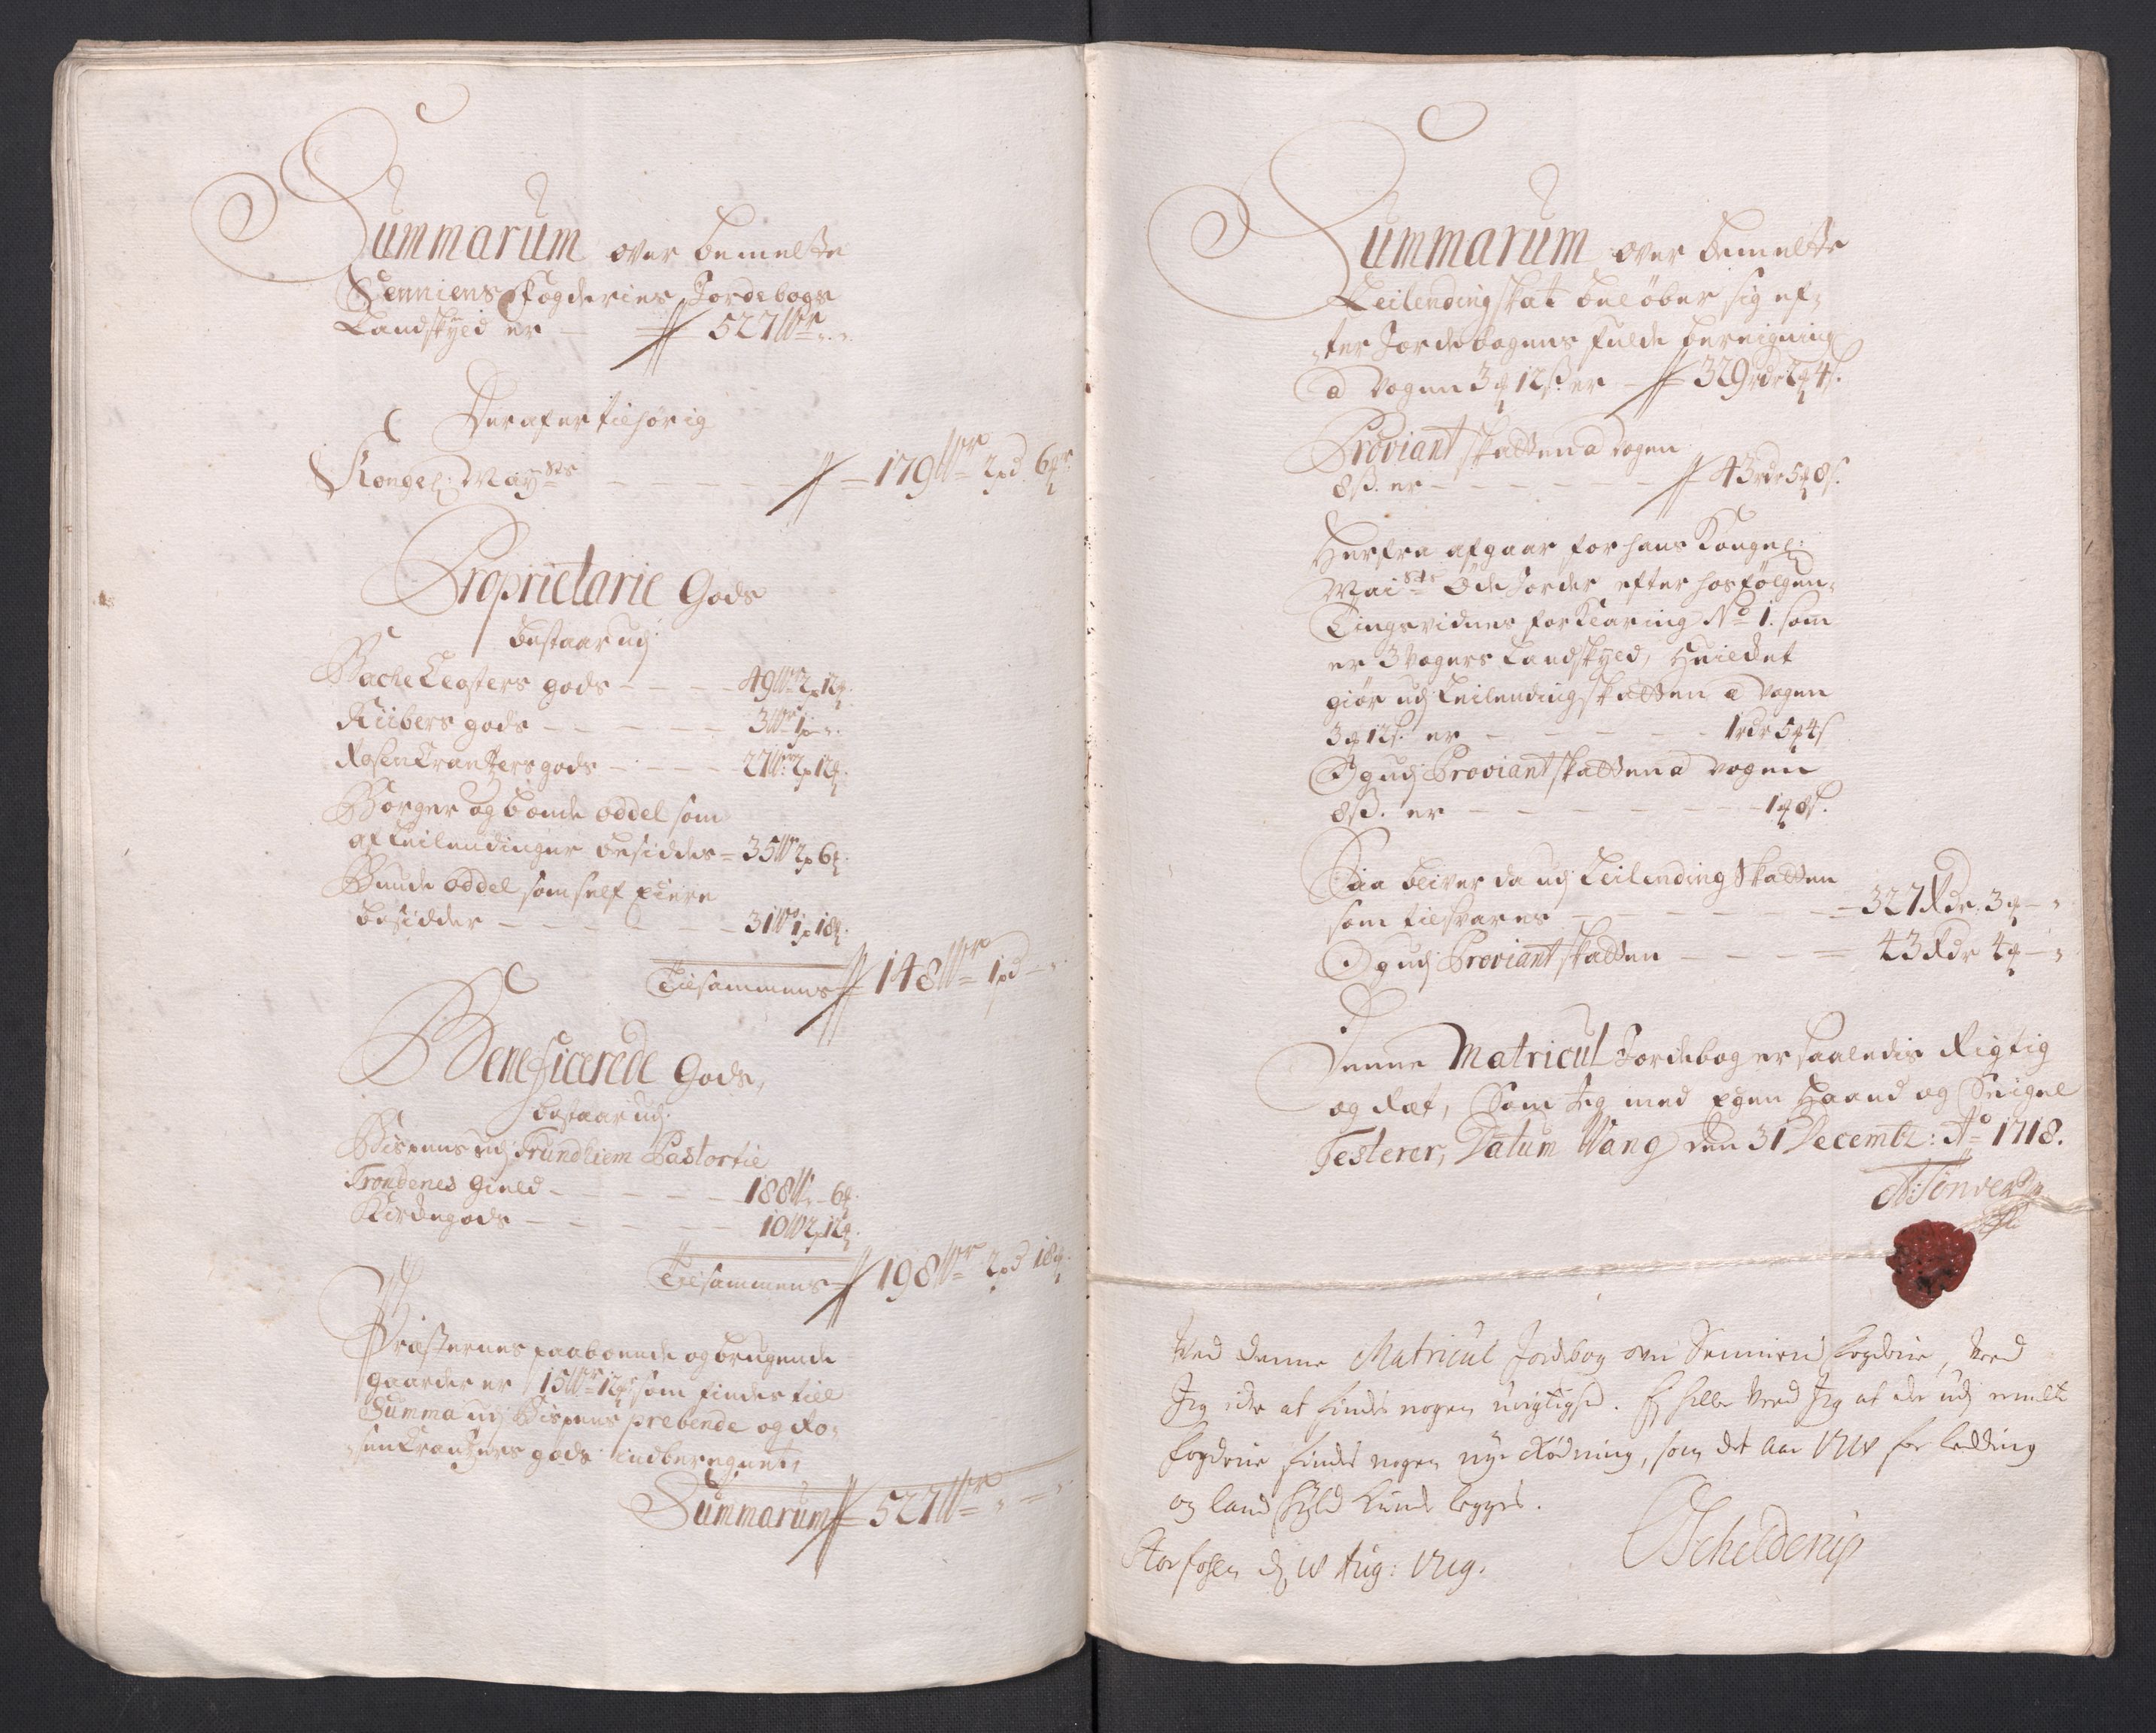 Summarum over bemelte
Senniens Fogderies Jordebogs
Landskyld er — 527 W
Deraf er tilhørig
Kongel: May:sts — — — — 179 W 2 pd 6 
Proprietarie Gods
bestaar udj
Bache Closters gods — — — 49 W 2 p 12
Riibers gods — — — — — 3 W 1 p
Rosenkrantzers gods — — — 27 W 2 p 12
Borger og bonde oddel som
af Leilendinger besiddes = 35 W 2 p 6
Bunde oddel som self eiere
besidder — — — — — 31 W 1 p 18
Tilsammens 148 W 1 pd
Beneficerede Gods,
bestaar udj
Bispens udj Trundhiem Pastorlie
Trondenes Gield — — — — 188 W 6
Kirkegods — — — — — 10 W 2 p 12
Tilsammens 198 W 2 pd 18
Præsternes paaboende og brugende
gaarder er 15 W 12 som findes till
Summa udj Bispens prebende og Ro-
senkrantzers gods indberegnet,
Summarum 527 W
Summarum over bemelte
Leilending skat beløber sig ef-
ter Jordebogens fulde bereigning
a Vogen 3 12 s. er — 329 rdr 2 4 s.
Proviant skatten a Vogen
8 s. er — — — — — 43 rdr 5 8 s.
Herfra afgaar for hans Kongel:
Mai:sts Öde Jorder efter hosfølgen-
Tingsvidnes forklaring No 1. som
er 3 Vogers Landskyld, Huilcket
giør udj Leilendingskatten a Vogen
3 12 s. er — — — — — 1 rdr 5 4 s
Og udj Proviantskatten a Vogen
8 s. er — — — — — — 1 8 s.
Saa bliver da udj Leilending Skatten
som tilsvares — — — — — 327 Rdr. 3
Og udj Proviantskatten — — — = 43 Rdr 4
Denne Matricul Jordebog er saaledis Rigtig
og Ræt, Som Jeg med egen Haand og Seigel
Testerer, Datum Wang den 31 Decembr: Ao 1718.
A: Tønder
Ved denne Matricul Jordebog over Senniens fogderie, Veed
Jeg icke at findes nogen urigtighed. Ej heller Veed Jeg at der udj emelte
fogderie findes nogen nye Rødning, som det Aar 1718 for ledding
og land skyld kunde legges.
Storfosen d. 18 Aug: 1719.
Schelderup